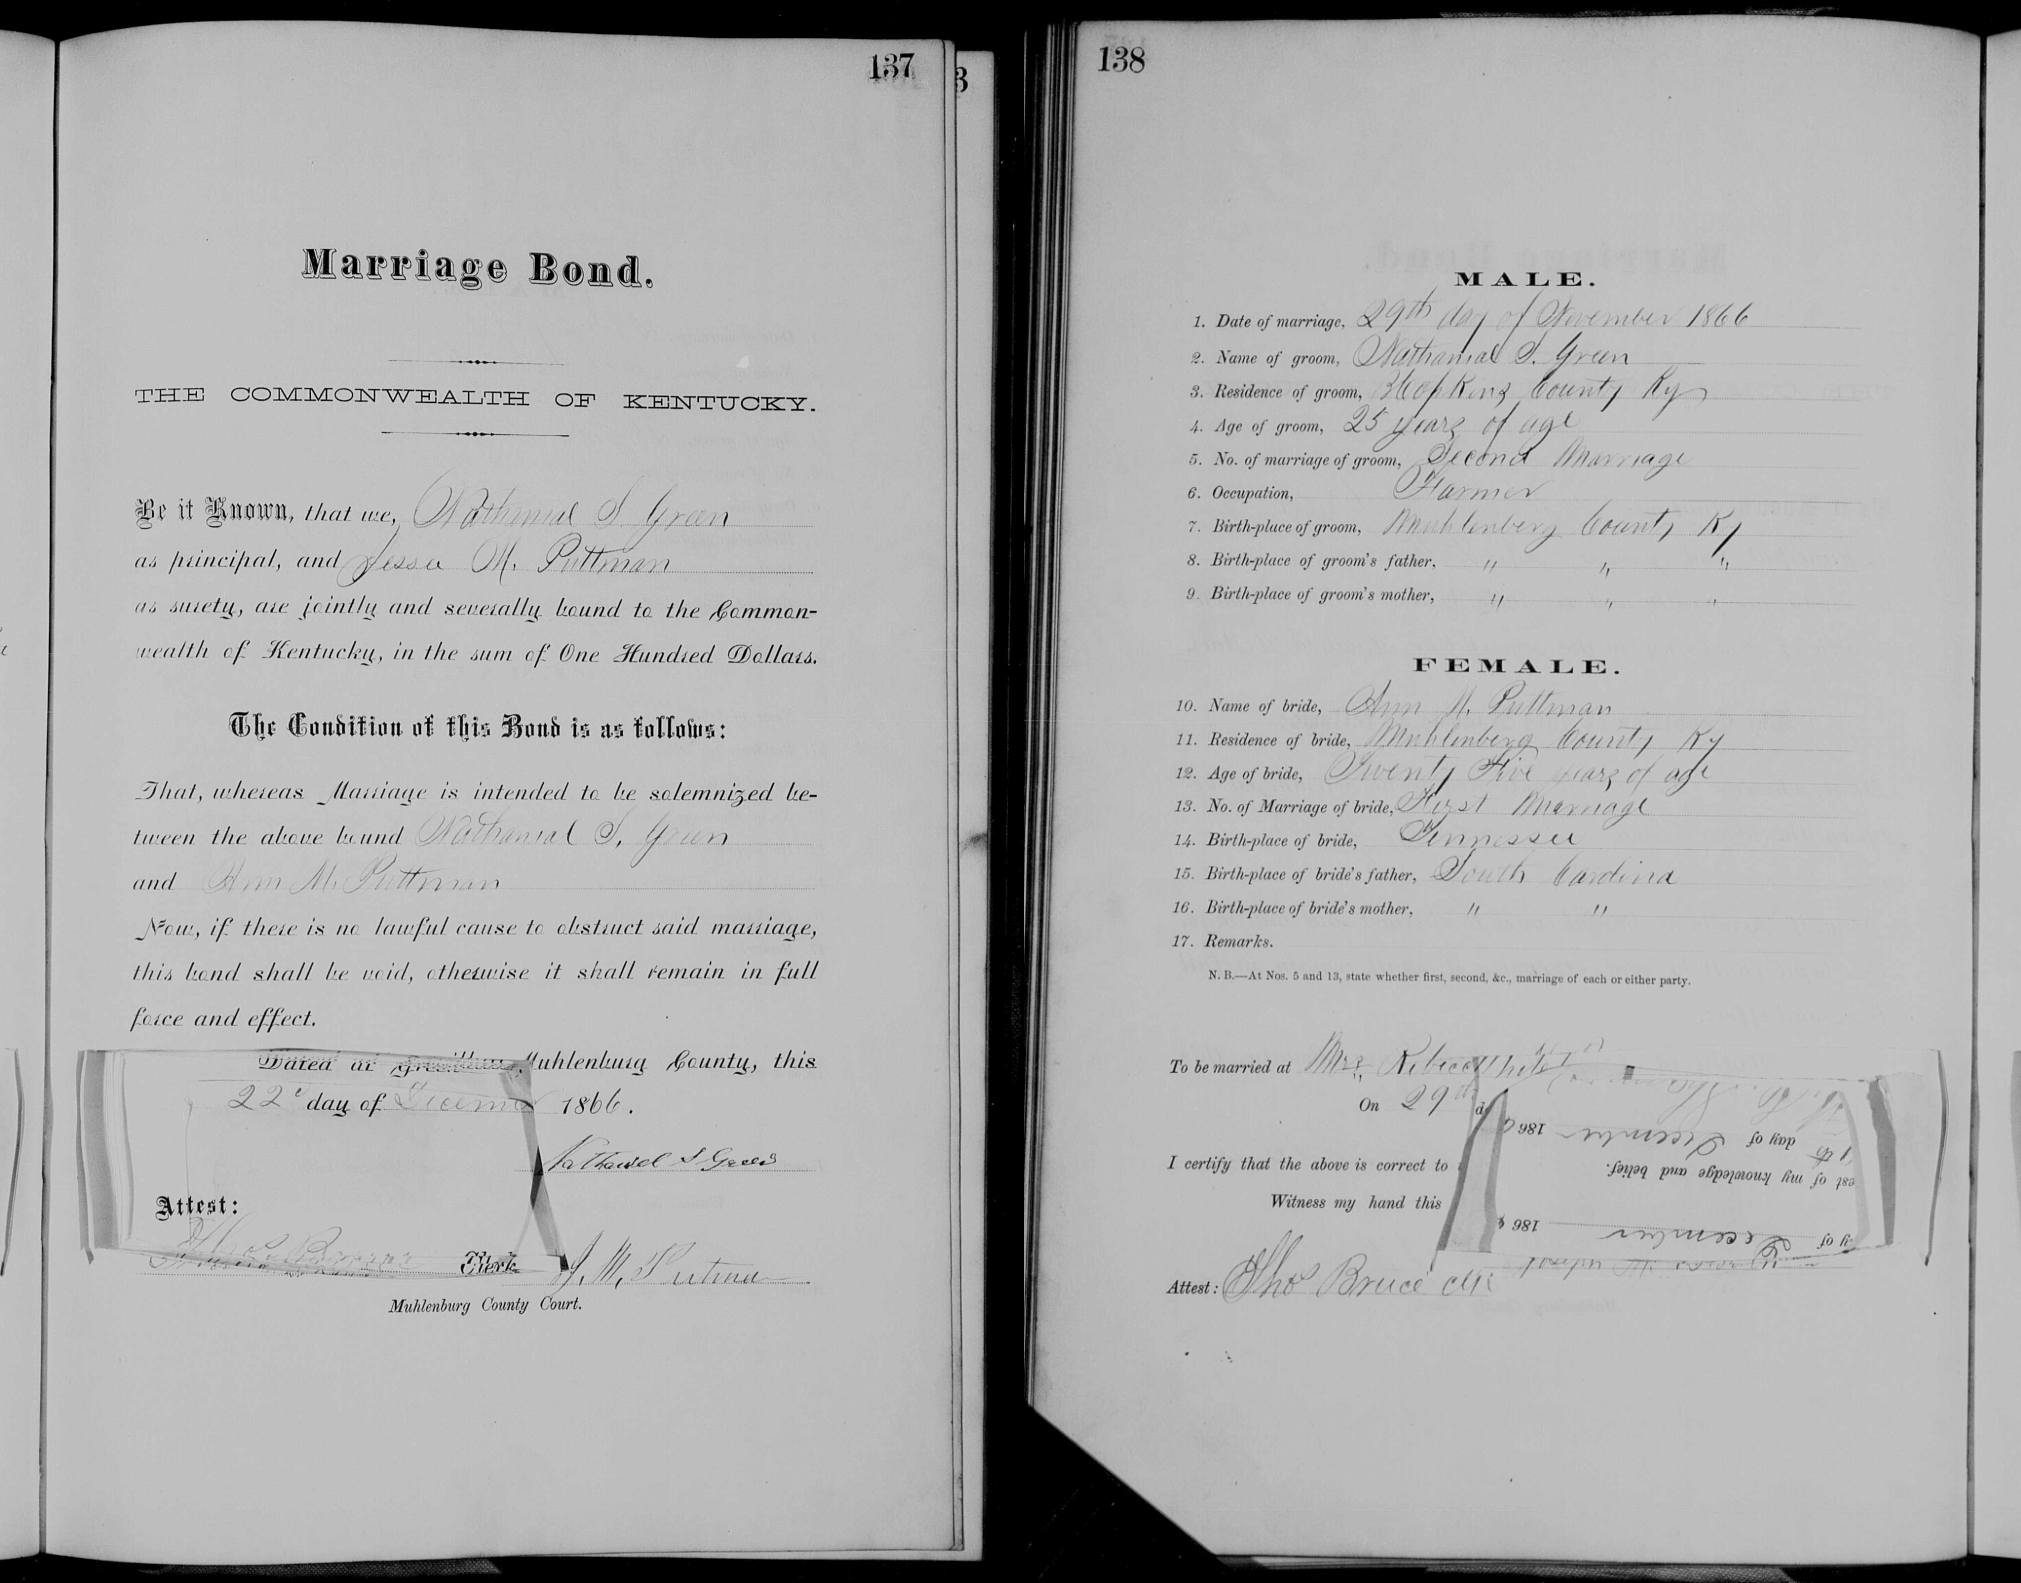 137
Marriage Bond.
THE COMMONWEALTH OF KENTUCKY.
Be it Known, that we, Nathanial S. Green
as principal, and Jesse M. Puttman
as surety, are jointly and severally bound to the Common-
wealth of Kentucky, in the sum of One Hundred Dollars.
The Condition of this Bond is as follows:
That, whereas Marriage is intended to be solemnized be-
tween the above bound Nathanial S. Green
and Ann M. Puttman
Now, if there is no lawful cause to obstruct said marriage,
this bond shall be void, otherwise it shall remain in full
force and effect.
Dated at Muhlenburg County, this
22d day of December 1866.
Nathaniel S Green
Attest:
Thos Bruce Clerk J. M. Putman
Muhlenburg County Court.
3
138
MALE.
1. Date of marriage, 29th day of November 1866
2. Name of groom, Nathanial S. Green
3. Residence of groom, Hopkins County Ky
4. Age of groom, 25 years of age
5. No. of marriage of groom, Second Marriage
6. Occupation, Farmer
7. Birth-place of groom, Muhlenberg County Ky
8. Birth-place of groom's father, " " "
9. Birth-place of groom's mother, " " "
FEMALE.
10. Name of bride, Ann M. Puttman
11. Residence of bride, Muhlenberg County Ky
12. Age of bride, Twenty Five years of age
13. No. of Marriage of bride, First Marriage
14. Birth-place of bride, Tennessee
15. Birth-place of bride's father, South Carolina
16. Birth-place of bride's mother, " "
17. Remarks.
N. B.—At Nos. 5 and 13, state whether first, second, &c., marriage of each or either party.
To be married at Mrs
On 29th d
day of December 186
I certify that the above is correct to
est of my knowledge and belief.
Witness my hand this
y of December 186
Attest: Thos Bruce clk